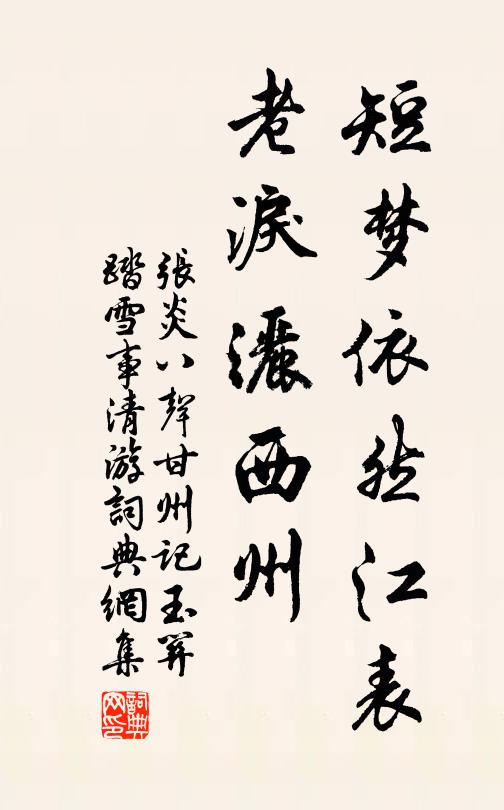 短梦依然江表
老淚灑西州
張炎八聲甘州記玉關
踏雪事清游詞典網集
詞典網印